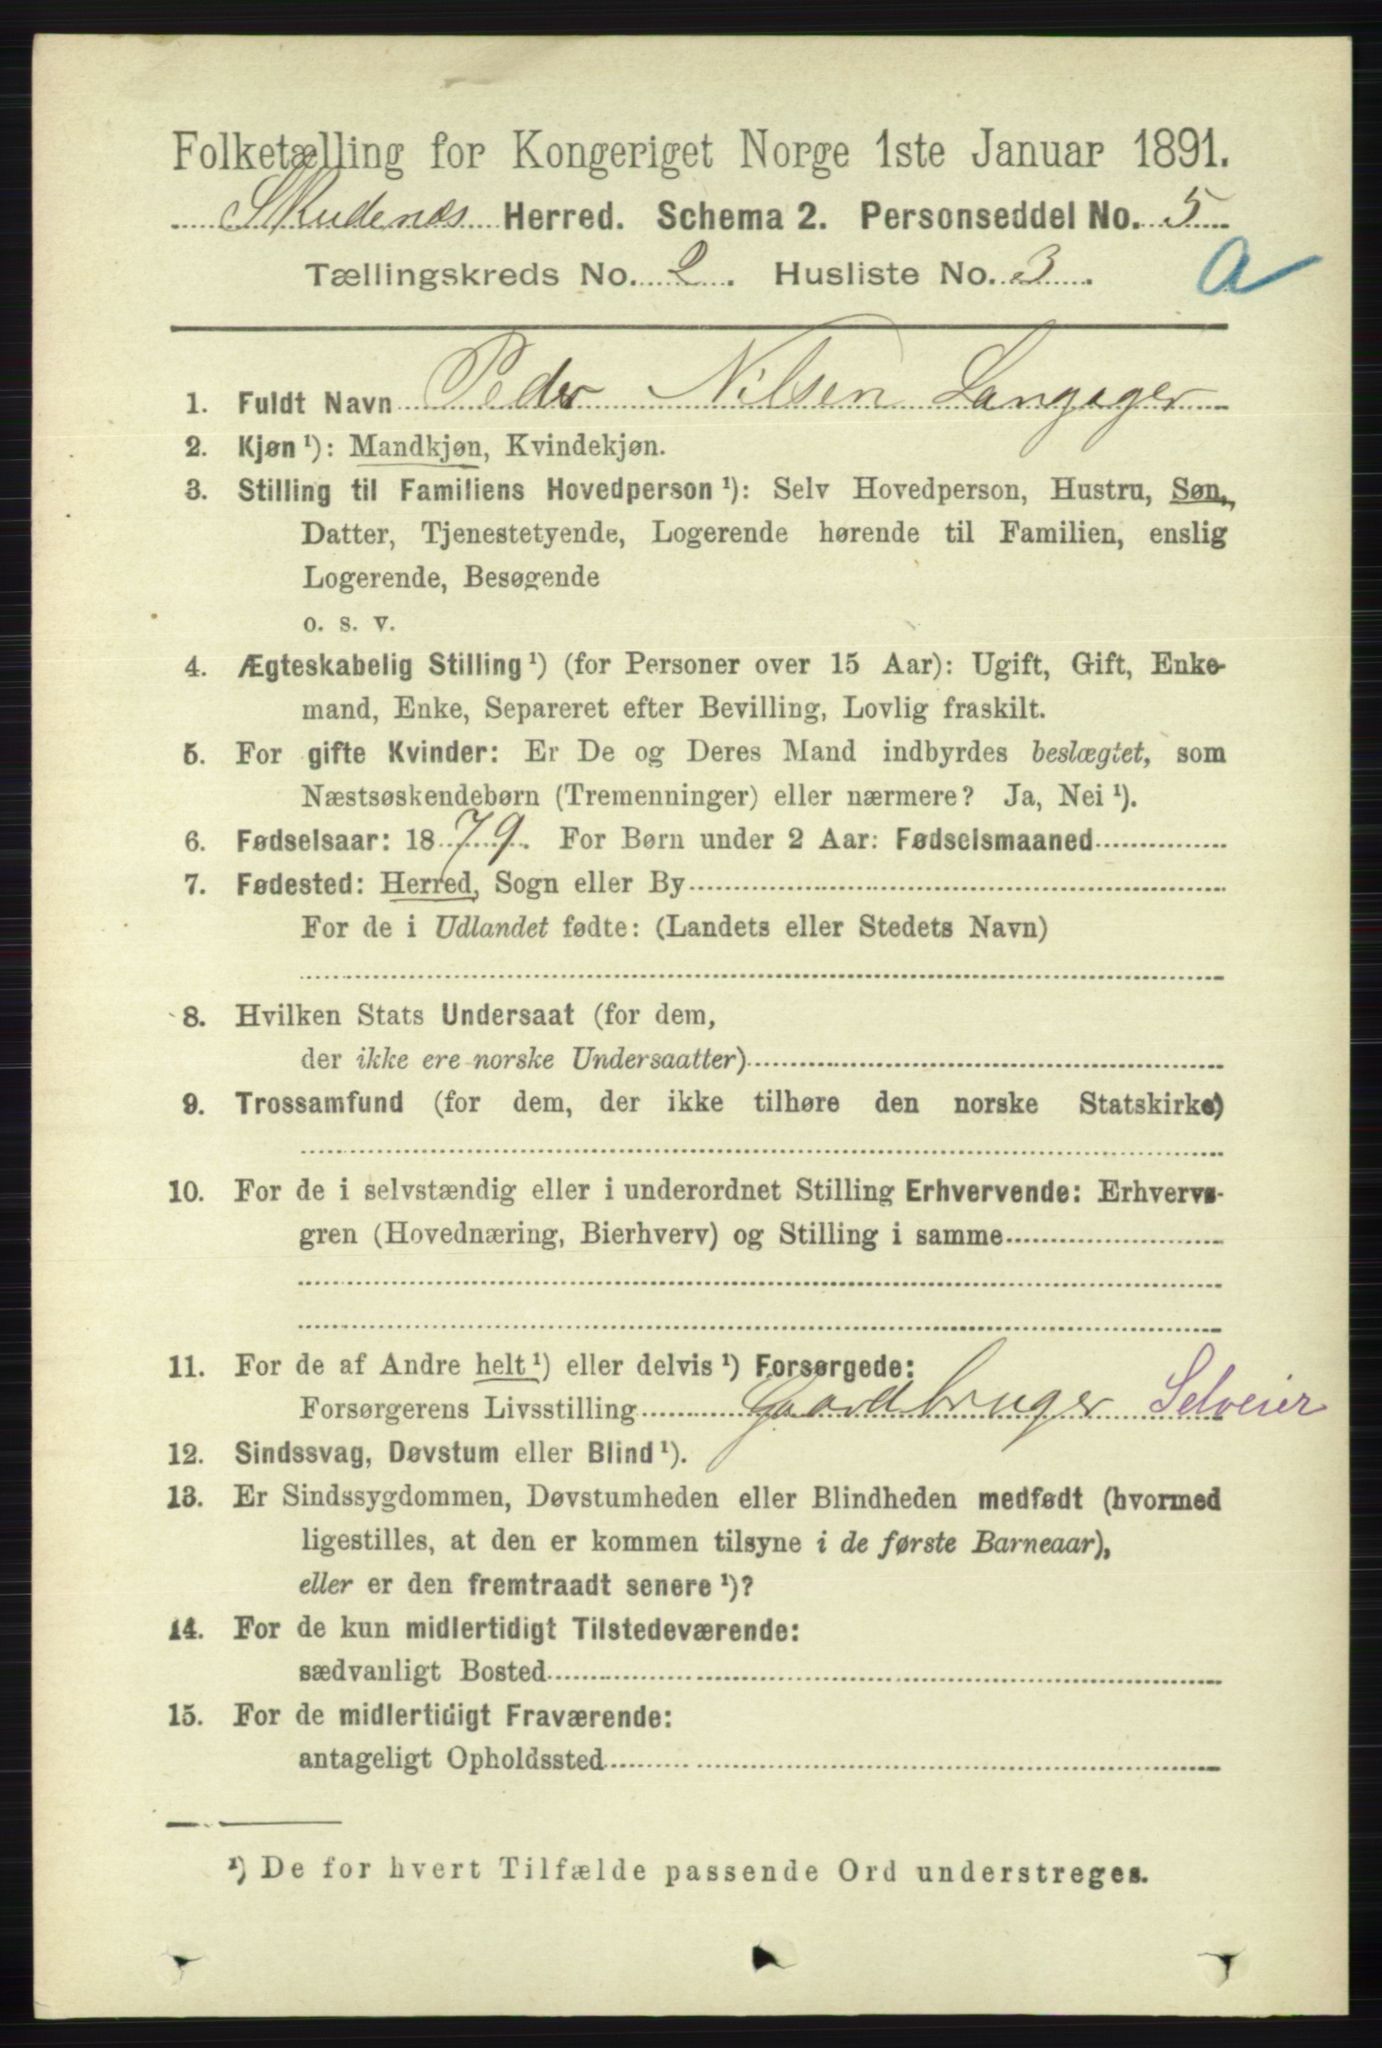 Folketælling for Kongeriget Norge 1ste Januar 1891.
Skudenes Herred. Schema 2. Personseddel No. 5
Tællingskreds No. 2. Husliste No. 3. a
1. Fuldt Navn Peder Nilsen Langager
2. Kjøn ¹): Mandkjøn, Kvindekjøn.
3. Stilling til Familiens Hovedperson ¹): Selv Hovedperson, Hustru, Søn,
Datter, Tjenestetyende, Logerende hørende til Familien, enslig
Logerende, Besøgende
o. s. v.
4. Ægteskabelig Stilling ¹) (for Personer over 15 Aar): Ugift, Gift, Enke-
mand, Enke, Separeret efter Bevilling, Lovlig fraskilt.
5. For gifte Kvinder: Er De og Deres Mand indbyrdes beslægtet, som
Næstsøskendebørn (Tremenninger) eller nærmere? Ja, Nei ¹).
6. Fødselsaar: 1879. For Børn under 2 Aar: Fødselsmaaned
7. Fødested: Herred, Sogn eller By
For de i Udlandet fødte: (Landets eller Stedets Navn)
8. Hvilken Stats Undersaat (for dem,
der ikke ere norske Undersaatter)
9. Trossamfund (for dem, der ikke tilhøre den norske Statskirke)
10. For de i selvstændig eller i underordnet Stilling Erhvervende: Erhvervs-
gren (Hovednæring, Bierhverv) og Stilling i samme
11. For de af Andre helt ¹) eller delvis ¹) Forsørgede:
Forsørgerens Livsstilling Gaardbruger Selveier
12. Sindssvag, Døvstum eller Blind ¹).
13. Er Sindssygdommen, Døvstumheden eller Blindheden medfødt (hvormed
ligestilles, at den er kommen tilsyne i de første Barneaar),
eller er den fremtraadt senere ¹)?
14. For de kun midlertidigt Tilstedeværende:
sædvanligt Bosted
15. For de midlertidigt Fraværende:
antageligt Opholdssted
¹) De for hvert Tilfælde passende Ord understreges.